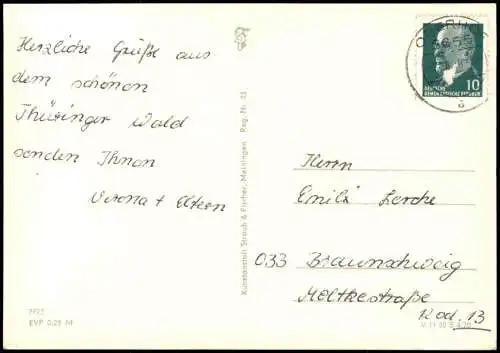 Herzliche Grüße aus
dem schönen
Thüringer Wald
senden Ihnen
Verona + Eltern
7925
EVP 0,25 M
Kunstanstalt Straub & Fischer, Meiningen Reg. Nr. 33
10
DEUTSCHE
DEMOKRATISCHE REPUBLIK
a
Herrn
Emil Lerche
033 Braunschweig
Moltkestraße
12 od. 13